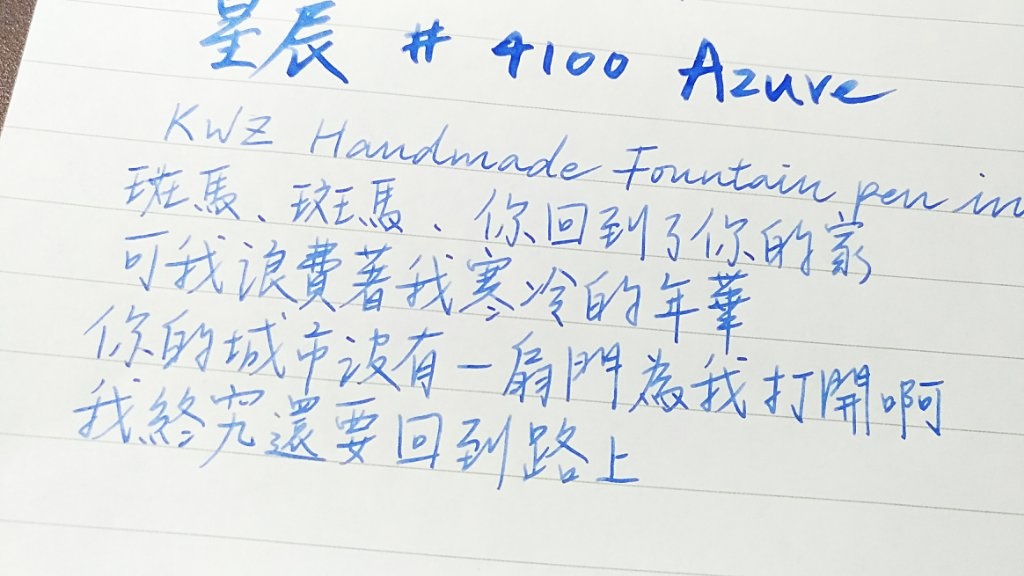 星辰 # 4100 Azure
KWZ Handmade Fountain pen in
斑馬、斑馬、你回到了你的家
可我浪費著我寒冷的年華
你的城市沒有一扇門為我打開啊
我終究還要回到路上